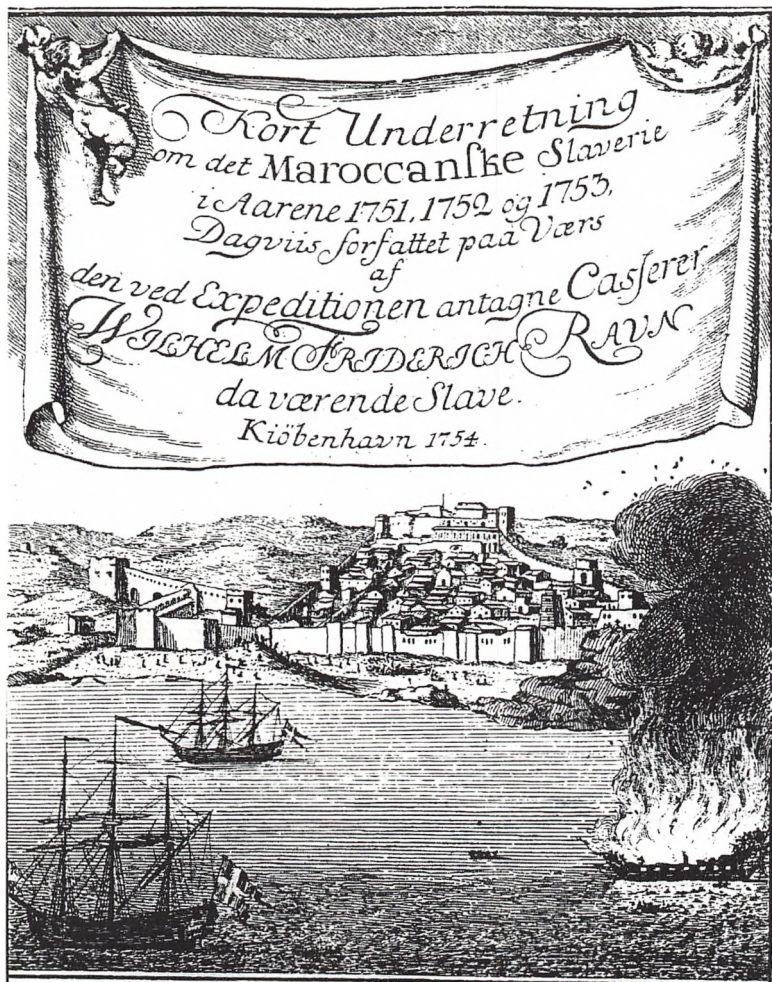 Kort Underretning
om det Maroccanſke Slaverie
i Aarene 1751, 1752 og 1753,
Dagviis forfattet paa Værs
af
den ved Expeditionen antagne Caſſerer
WILHELM FRIDERICH RAVN
da værende Slave.
Kiöbenhavn 1754.